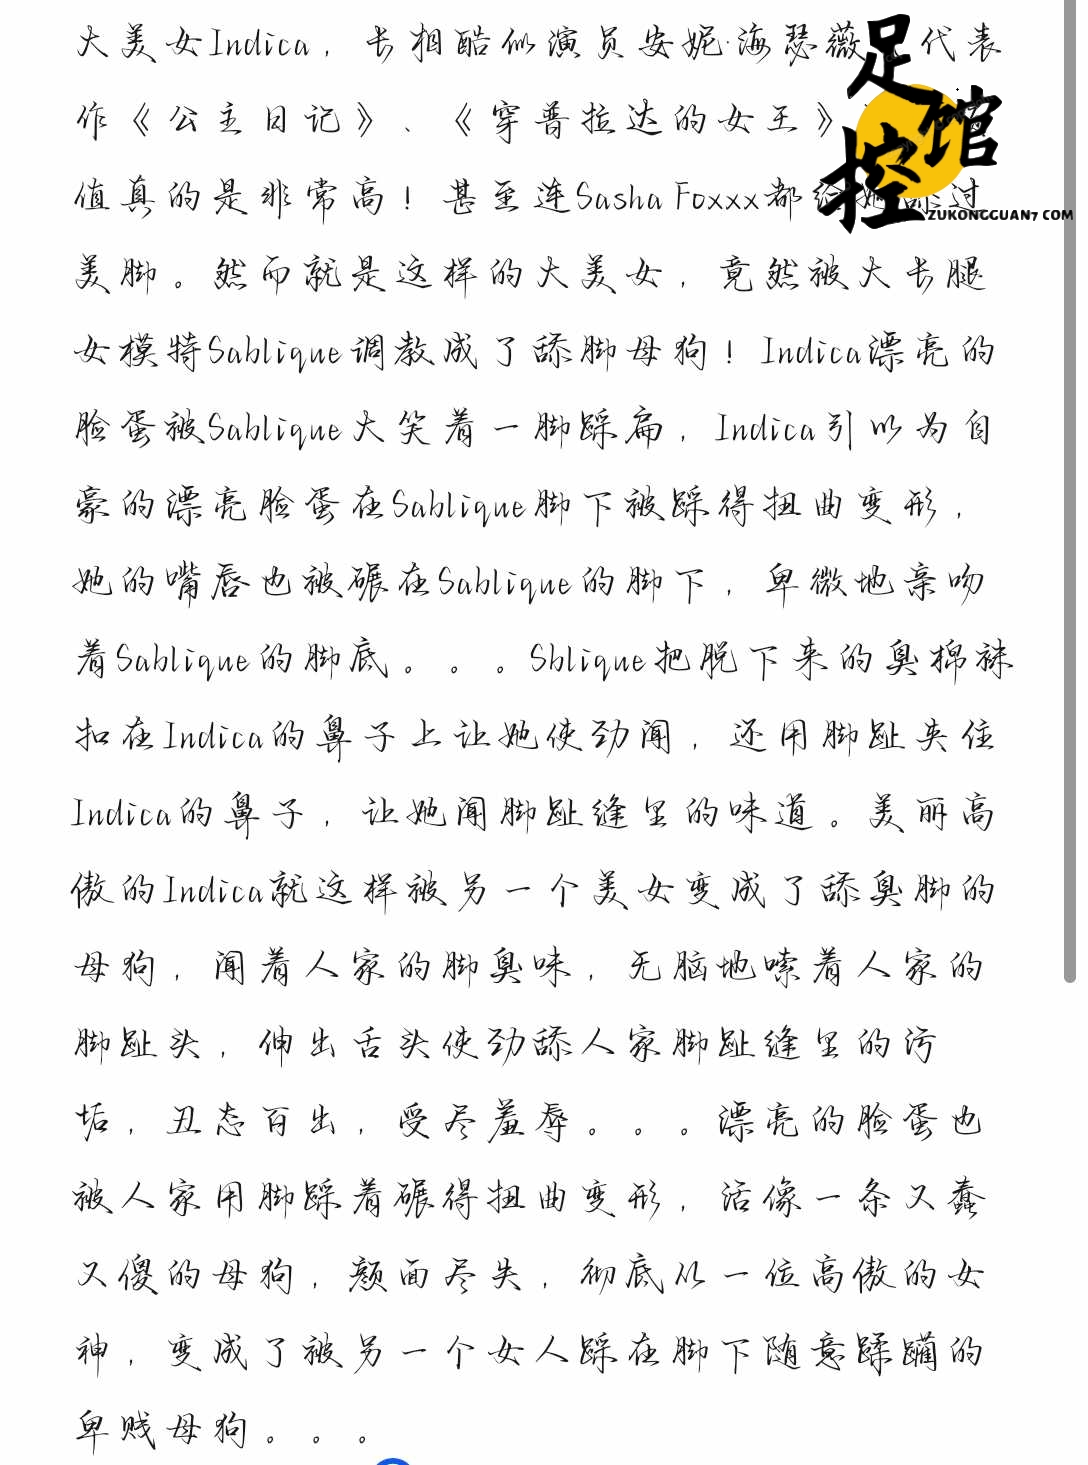 大美女Indica，长相酷似演员安妮·海瑟薇 代表
作《公主日记》、《穿普拉达的女王》
值真的是非常高！甚至连Sasha Foxxx都给她舔过
美脚。然而就是这样的大美女，竟然被大长腿
女模特Sablique调教成了舔脚母狗！Indica漂亮的
脸蛋被Sablique大笑着一脚踩扁，Indica引以为自
豪的漂亮脸蛋在Sablique脚下被踩得扭曲变形，
她的嘴唇也被碾在Sablique的脚下，卑微地亲吻
着Sablique的脚底。。。Sblique把脱下来的臭棉袜
扣在Indica的鼻子上让她使劲闻，还用脚趾夹住
Indica的鼻子，让她闻脚趾缝里的味道。美丽高
傲的Indica就这样被另一个美女变成了舔臭脚的
母狗，闻着人家的脚臭味，无脑地嗦着人家的
脚趾头，伸出舌头使劲舔人家脚趾缝里的污
垢，丑态百出，受尽羞辱。。。漂亮的脸蛋也
被人家用脚踩着碾得扭曲变形，活像一条又蠢
又傻的母狗，颜面尽失，彻底从一位高傲的女
神，变成了被另一个女人踩在脚下随意蹂躏的
卑贱母狗。。。
足控馆
ZUKONGGUAN7.COM